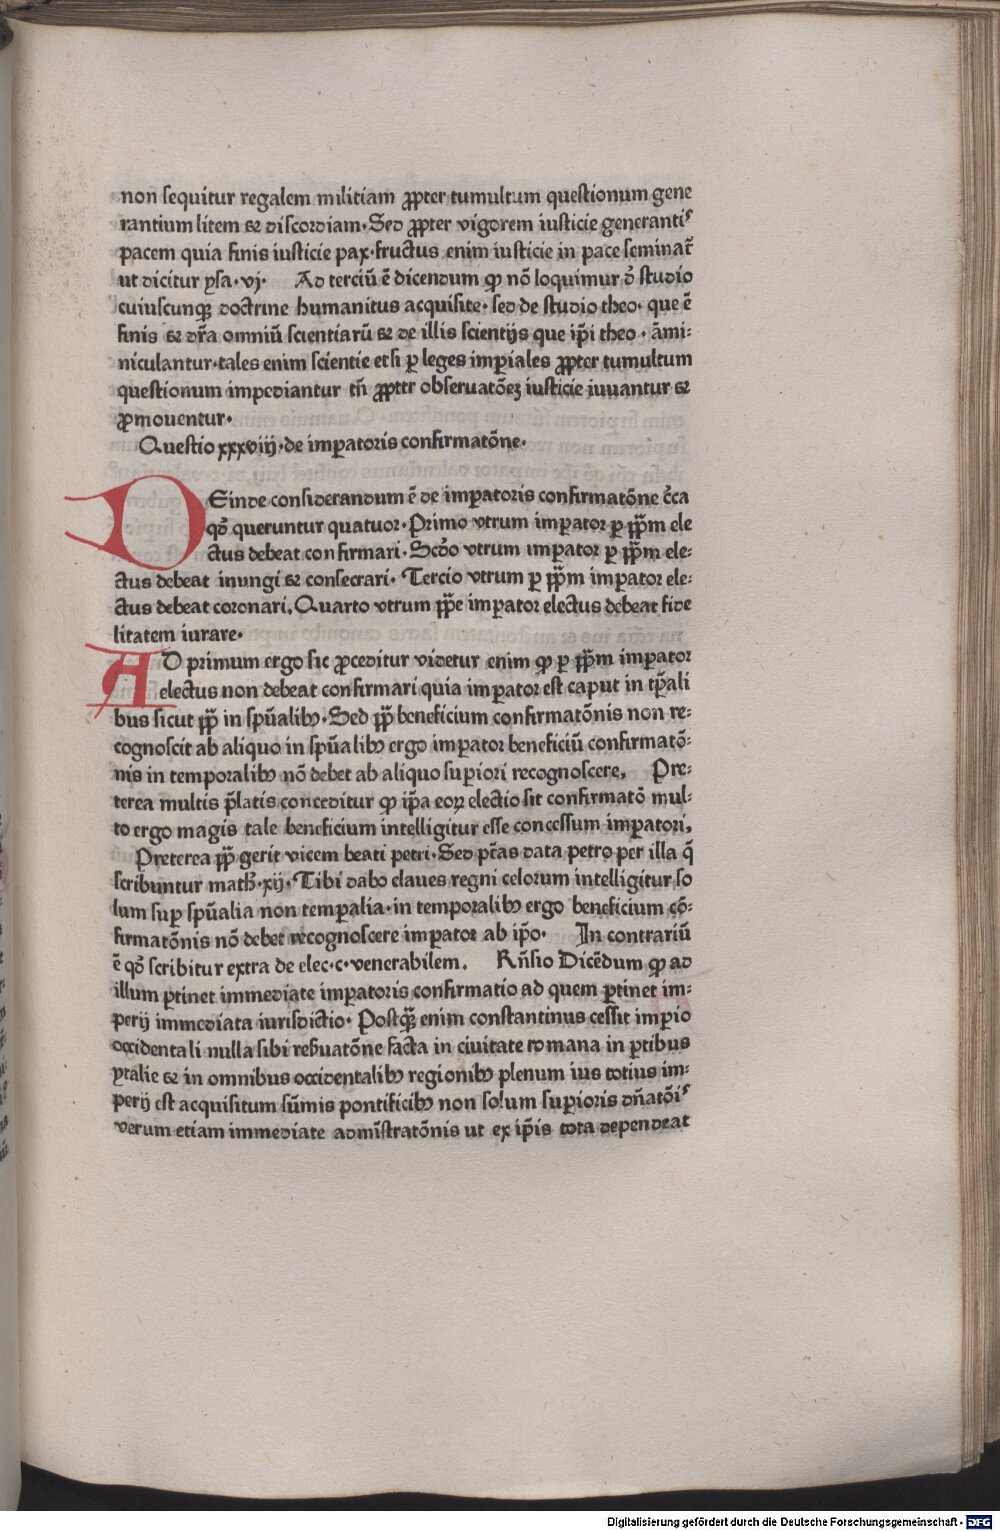 non sequitur regalem militiam ꝓpter tumultum questionum gene
rantium litem ⁊ discordiam·Sed ꝓpter vigorem iusticie generantiˢ
pacem quia finis iusticie pax·fructus enim iusticie in pace seminat᷑
ut dicitur ysa·vj· Ad terciū ē dicendum ꝙ nō loquimur d̄ studio
cuiuscunqꝫ doctrine humanitus acquisite·sed de studio theo·que ē
finis ⁊ dr̄a omniū scientiarū ⁊ de illis scientijs que ip̄i theo·ami-
niculantur·tales enim scientie etsi ꝑ leges imꝑiales ꝓpter tumultum
questionum impediantur tn̄ ꝓpter obseruatōeꝫ iusticie iuuantur ⁊
ꝓmouentur·
Questio xxxviij·de imꝑatoris confirmatōne·
DEinde considerandum ē de imꝑatoris confirmatōne c̄ca
qd̄ queruntur quatuor·Primo vtrum imꝑator ꝑ pp̄m ele
ctus debeat confirmari·Scd̄o vtrum imꝑator ꝑ pp̄m ele-
ctus debeat inungi ⁊ consecrari·Tercio vtrum ꝑ pp̄m imꝑator ele-
ctus debeat coronari.Quarto vtrum pp̄e imꝑator electus debeat fide
litatem iurare·
AD primum ergo sic ꝓceditur videtur enim ꝙ ꝑ pp̄m imꝑator
electus non debeat confirmari quia imꝑator est caput in tp̄ali
bus sicut pp̄ in spūalibꝰ·Sed pp̄ beneficium confirmatōnis non re-
cognoscit ab aliquo in spūalibꝰ ergo imꝑator beneficiū confirmatō-
nis in temporalibꝰ nō debet ab aliquo suꝑiori recognoscere. Pre-
terea multis p̄latis conceditur ꝙ ip̄a eoꝝ electio sit confirmatō mul-
to ergo magis tale beneficium intelligitur esse concessum imꝑatori.
Preterea pp̄ gerit vicem beati petri·Sed pt̄as data petro per illa q̄
scribuntur math·xij·Tibi dabo claues regni celorum intelligitur so
lum suꝑ spūalia non temꝑalia·in temporalibꝰ ergo beneficium cō-
firmatōnis nō debet recognoscere imꝑator ab ip̄o· In contrariū
ē qd̄ scribitur extra de elec·c·venerabilem. Rn̄sio Dicēdum ꝙ ad
illum ꝑtinet immediate imꝑatoris confirmatio ad quem ꝑtinet im-
perij immediata iurisdictio·Postqꝫ enim constantinus cessit imꝑio
occidentali nulla sibi reẜuatōne facta in ciuitate romana in ꝑtibus
ytalie ⁊ in omnibus occidentalibꝰ regionibꝰ plenum ius totius im-
perij est acquisitum sūmis pontificibꝰ non solum suꝑioris dn̄atōiˢ
verum etiam immediate admīstratōnis ut ex ip̄is tota dependeat
Digitalisierung gefördert durch die Deutsche Forschungsgemeinschaft - DFG